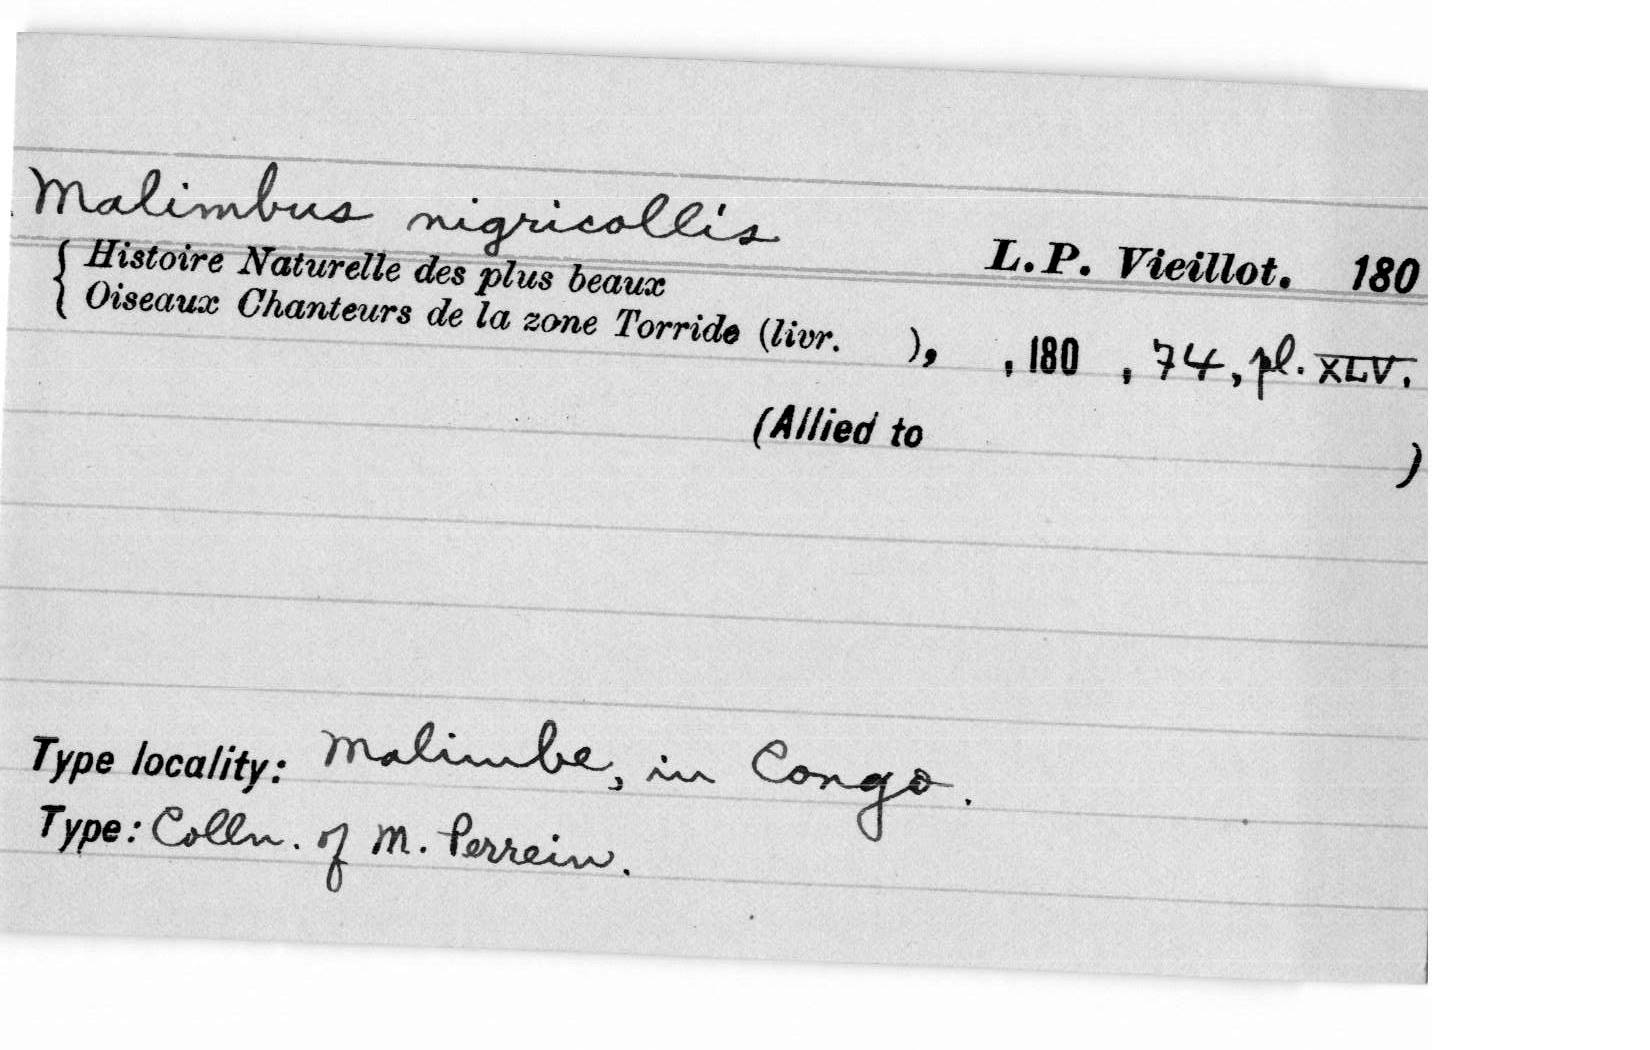 Malimbus nigricollis
L.P. Vieillot. 180
Histoire Naturelle des plus beaux
Oiseaux Chanteurs de la zone Torride (livr. ), , 180 , 74, pl. XLV.
(Allied to )
Type locality: Malimbe, in Congo.
Type: Colln. of M. Perrein.